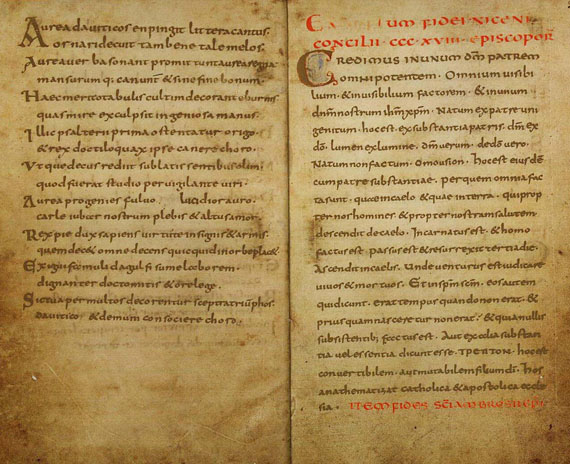 Aurea daviticos en pingit littera cantus.
ornari decuit tam bene tale melos.
Aurea verba sonant promittunt aurea regna
mansurumq; canunt & sine fine bonum.
Haec merito tabulis cultim decorantur eburnis
quas mire exculpsit ingeniosa manus.
Illic psalterii prima ostentatur origo.
& rex doctiloquax ipse canere choro.
Utq; decus rediit sublatis sentibus olim.
quod fuerat studio pervigilante viri.
Aurea progenies fulvo lucidior auro.
carle iubar nostrum plebis & altus amor.
Rex pie dux sapiens virtute insignis & armis.
quem dec& omne decens quicquid in orbe plac&
Exigui famuli dagulfi sume laborem.
dignanter docto mitis & ore lege.
Sic tua per multos decorentur sceptra triumphos.
davitico & demum consociere choro.
UM FIDEI NICENI
CONCILII CCC XVIII EPISCOPOR
CREDIMUS IN UNUM DM PATREM
OMNIPOTENTEM. Omnium visibi
lium. & invisibilium factorem. & in unum
dnm nostrum ihm xpm. Natum ex patre uni
genitum. hoc est. ex substantia patris. dm ex
do. lumen ex lumine. dm verum. de do vero.
Natum non factum. Omousion. hoc est eiusdē
cum patre substantiae. per quem omnia fac
ta sunt. quae in caelo. & quae in terra. qui prop
ter nos homines. & propter nostram salutem
descendit de caelo. Incarnatus est. & homo
factus est. passus est & resurrexit tertia die.
Ascendit in caelis. Unde venturus est iudicare
vivos & mortuos. Et in spm scm. eos autem
qui dicunt. erat tempus quando non erat. &
priusquam nasceretur non erat. & quia nullis
subsistentib; factus est. Aut ex alia substan
tia vel essentia dicunt esse. TPETTTON. hoc est
convertibilem. aut mutabilem filium di. hos
anathematizat catholica & apostolica eccle
sia. ITEM FIDES SCI AMBROSII EPI